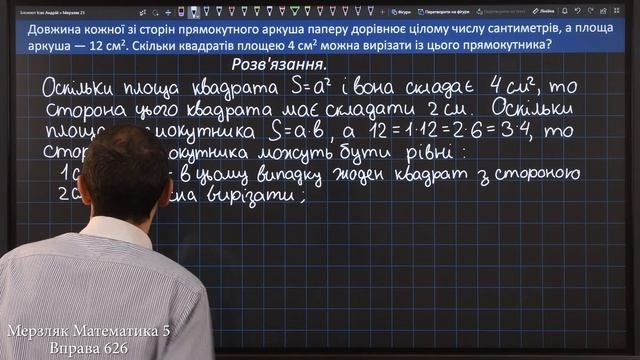 Довжина кожної зі сторін прямокутного аркуша паперу дорівнює цілому числу сантиметрів, а площа
аркуша — 12 см². Скільки квадратів площею 4 см² можна вирізати із цього прямокутника?
Розв'язання.
Оскільки площа квадрата S=a² і вона складає 4 см², то
сторона цього квадрата має складати 2 см. Оскільки
площа S=a·b, а 12=1·12=2·6=3·4, то
можуть бути рівні:
1 - в цьому випадку жоден квадрат з стороною
2 вирізати;
Мерзляк Математика 5
Вправа 626